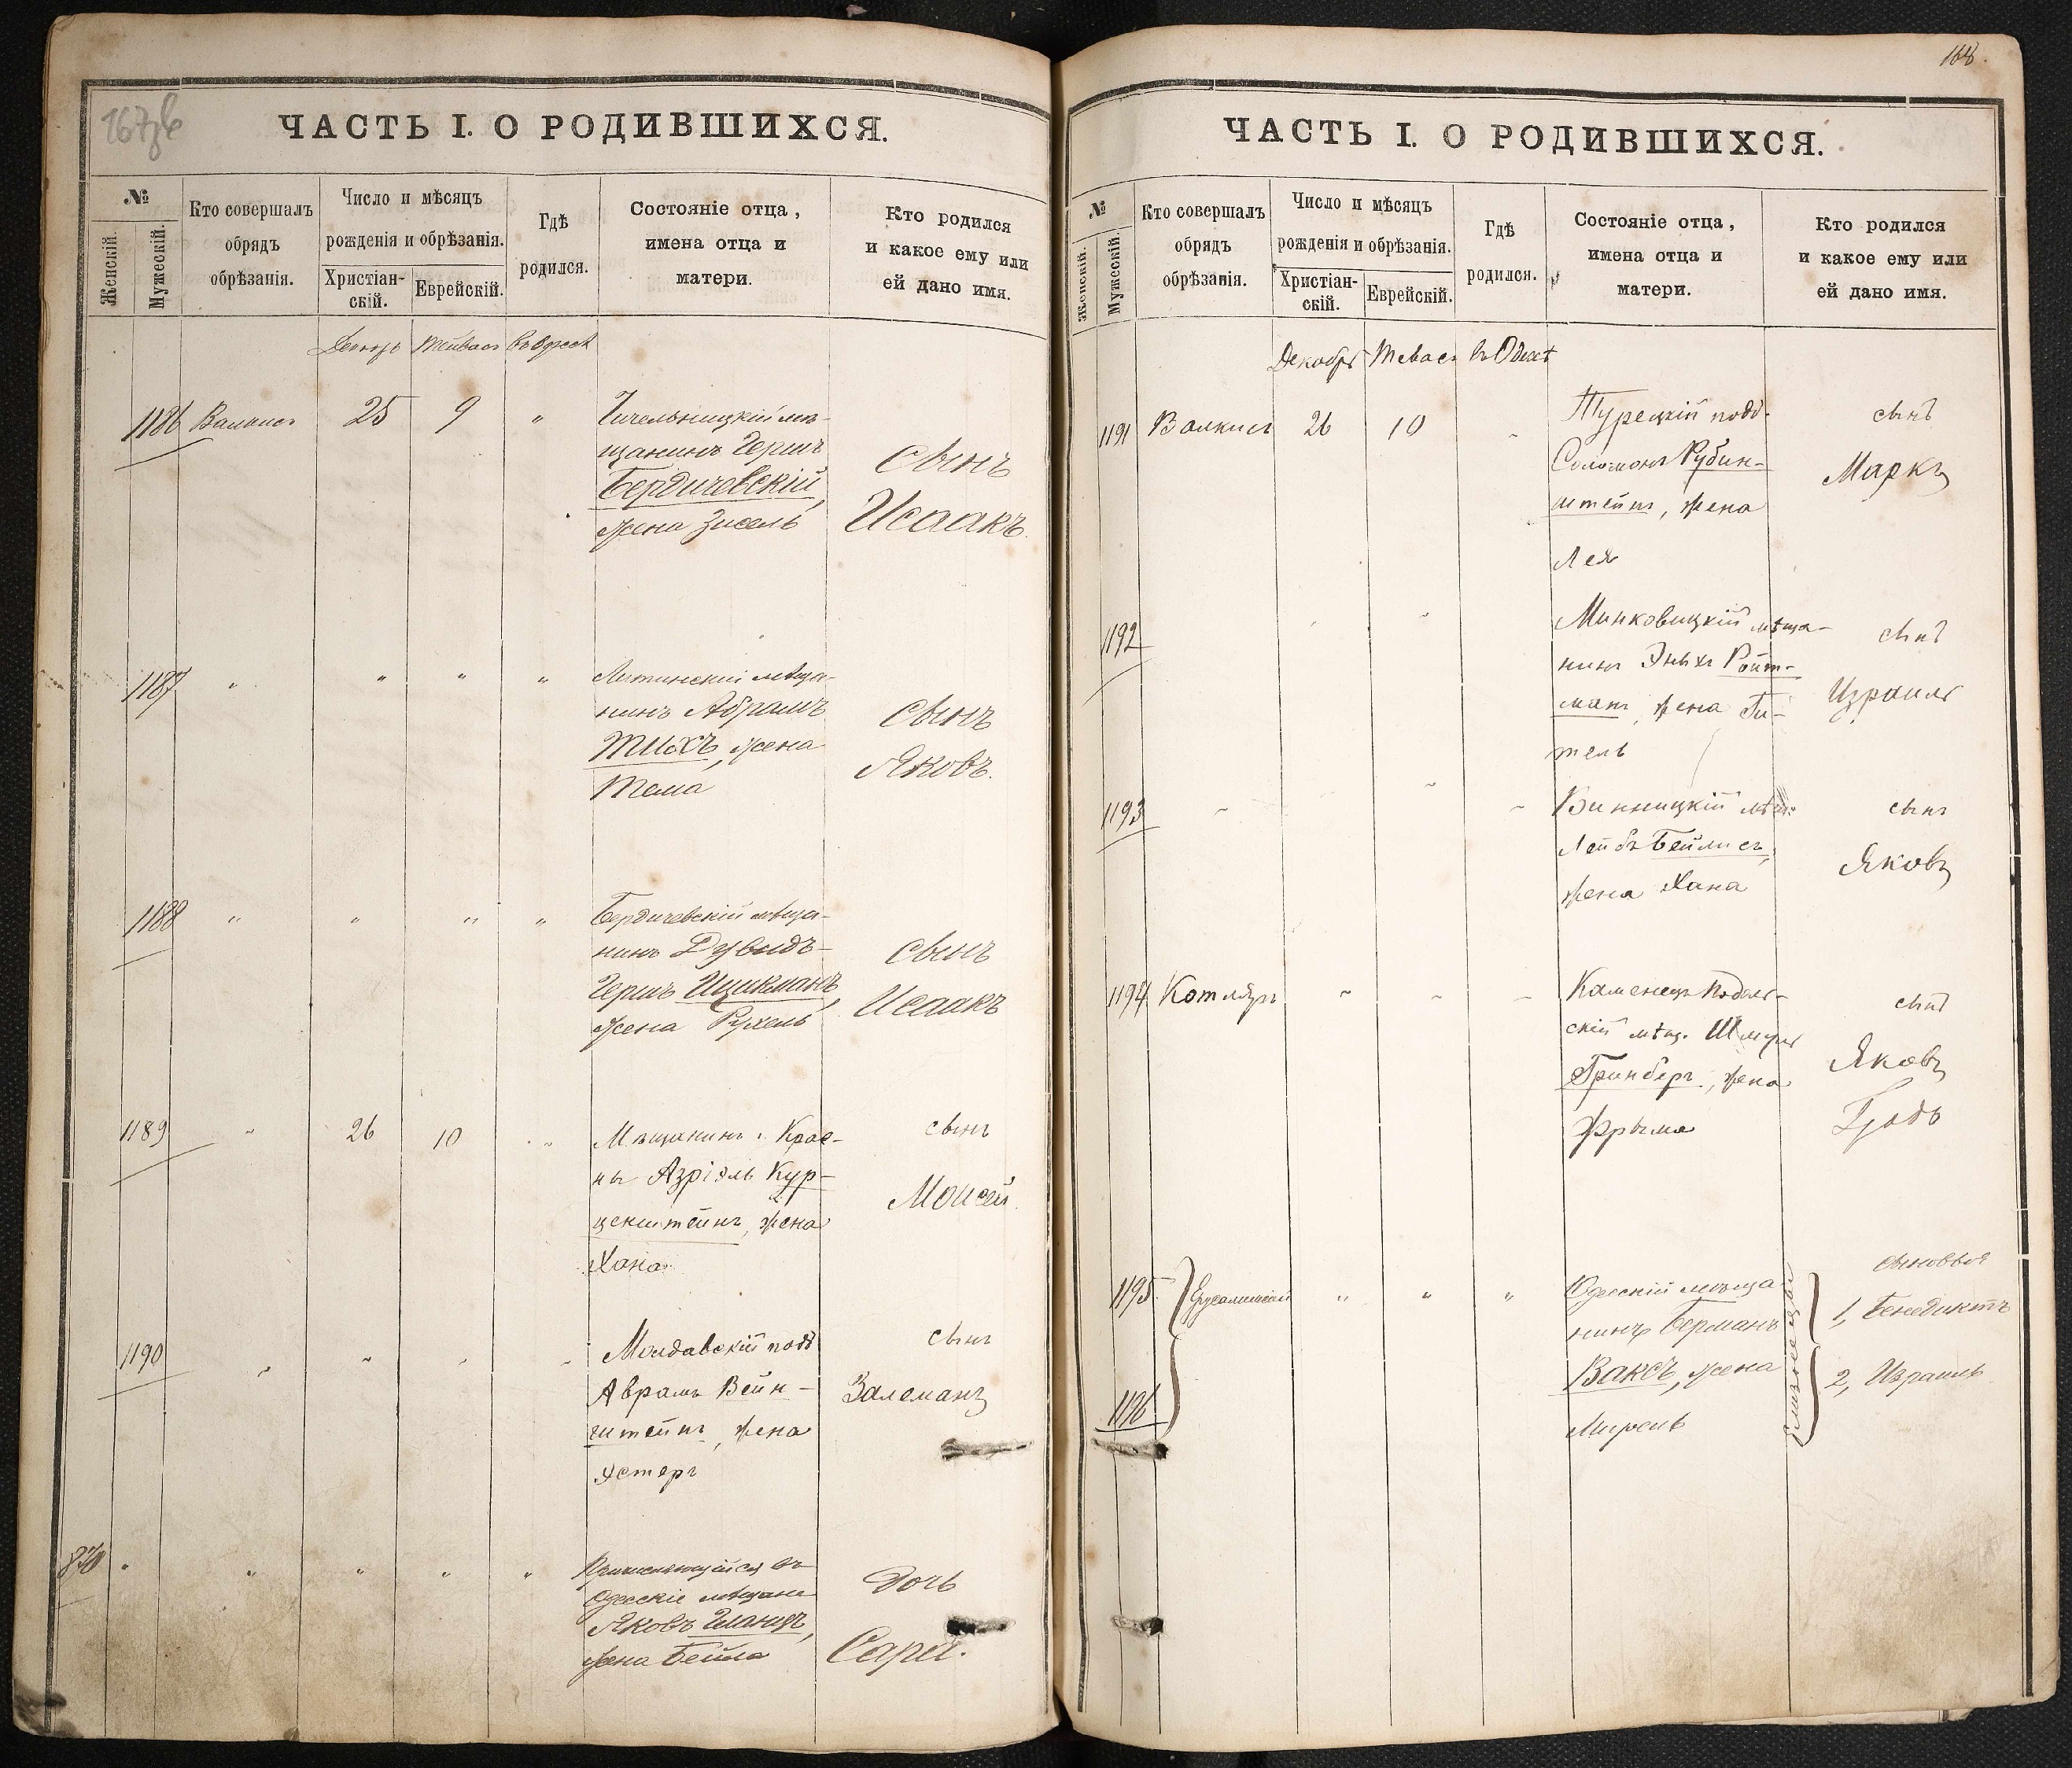 ЧАСТЬ I. О РОДИВШИХСЯ.
№
Женскій.
Мужескій.
Кто совершалъ
обрядъ
обрѣзанія.
Число и мѣсяцъ
рожденія и обрѣзанія.
Христіан-
скій.
Еврейскій.
Гдѣ
родился.
Состояніе отца,
имена отца и
матери.
Кто родился
и какое ему или
ей дано имя.
1186
25 9 "
щанинъ Герш
Бердичевскій,
жена Зисель
Сынъ
Исаакъ.
1187 " " " "
Литинскій мѣща-
нинъ Абрамъ
Тихъ, жена
Тема
Сынъ
Яковъ.
1188 " " " "
Бердичевскій мѣща-
нинъ Дувидъ-
Гершъ Ицикманъ,
жена Рухель
Сынъ
Исаакъ
1189 " 26 10 "
Мѣщанинъ г. Крас-
ны Азріэль Кур-
ценштейнъ, жена
Хана
сынъ
Моисей
1190 " " " "
Молдавскій подд
Аврамъ Вейн-
штейнъ, жена
Эстеръ
сынъ
Залеманъ
870 " " " " "
Причисляющійся въ
Одесскіе мѣщане
Яковъ Гланцъ,
жена Бейла
Дочь
Сара.
168.
ЧАСТЬ I. О РОДИВШИХСЯ.
№
Женскій.
Мужескій.
Кто совершалъ
обрядъ
обрѣзанія.
Число и мѣсяцъ
рожденія и обрѣзанія.
Христіан-
скій.
Еврейскій.
Гдѣ
родился.
Состояніе отца,
имена отца и
матери.
Кто родился
и какое ему или
ей дано имя.
Декабрь Тевасъ въ Одессѣ
1191 Валкисъ 26 10 "
Турецкій подд.
Соломонъ Рубин-
штейнъ, жена
Лея
сынъ
Маркъ
1192
Минковицкій мѣща-
нинъ Эныхъ Ройт-
манъ, жена Ги-
тель
сынъ
Израиль
1193
Винницкій мѣщ.
Лейбъ Бейлисъ,
жена Хана
сынъ
Яковъ
1194 Котляръ " " "
Каменецъ Подоль-
скій мѣщ. Шмуль
Гринбергъ, жена
Фрыма
сынъ
Яковъ
1195 Ерусалимскій " " "
1196
Одесскій мѣща-
нинъ Германъ
Ваксъ, жена
Мирель
близнецы
сыновья
1, Бенедиктъ
2, Израиль